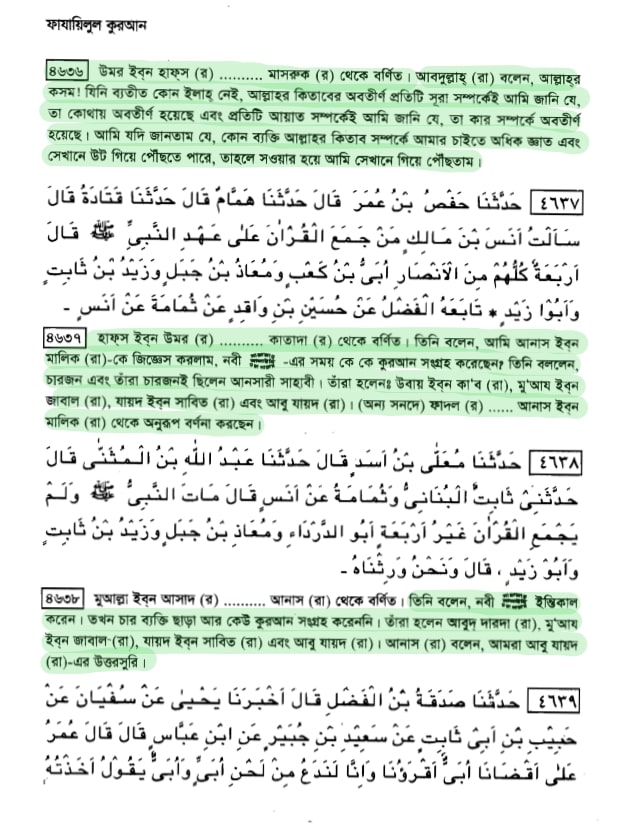 ফাযায়িলুল কুরআন
৪৬৩৬ উমর ইব্‌ন হাফ্‌স (র) .......... মাসরূক (র) থেকে বর্ণিত। আবদুল্লাহ্ (রা) বলেন, আল্লাহ্‌র
কসম! যিনি ব্যতীত কোন ইলাহ্ নেই, আল্লাহ্‌র কিতাবের অবতীর্ণ প্রতিটি সূরা সম্পর্কেই আমি জানি যে,
তা কোথায় অবতীর্ণ হয়েছে এবং প্রতিটি আয়াত সম্পর্কেই আমি জানি যে, তা কার সম্পর্কে অবতীর্ণ
হয়েছে। আমি যদি জানতাম যে, কোন ব্যক্তি আল্লাহ্‌র কিতাব সম্পর্কে আমার চাইতে অধিক জ্ঞাত এবং
সেখানে উট গিয়ে পৌঁছতে পারে, তাহলে সওয়ার হয়ে আমি সেখানে গিয়ে পৌঁছতাম।
٤٦٣٧ حَدَّثَنَا حَفْصُ بْنُ عُمَرَ قَالَ حَدَّثَنَا هَمَّامٌ قَالَ حَدَّثَنَا قَتَادَةُ قَالَ
سَاَلْتُ اَنَسَ بْنَ مَالِكٍ مَنْ جَمَعَ الْقُرْاٰنَ عَلٰى عَهْدِ النَّبِىِّ ﷺ قَالَ
اَرْبَعَةٌ كُلُّهُمْ مِنَ الْاَنْصَارِ اُبَىُّ بْنُ كَعْبٍ وَمُعَاذُ بْنُ جَبَلٍ وَزَيْدُ بْنُ ثَابِتٍ
وَاَبُوْا زَيْدٍ * تَابَعَهُ الْفَضْلُ عَنْ حُسَيْنِ بْنِ وَاقِدٍ عَنْ ثُمَامَةَ عَنْ اَنَسٍ -
৪৬৩৭ হাফ্‌স ইব্‌ন উমর (র) .......... কাতাদা (র) থেকে বর্ণিত। তিনি বলেন, আমি আনাস ইব্‌ন
মালিক (রা)-কে জিজ্ঞেস করলাম, নবী ﷺ -এর সময় কে কে কুরআন সংগ্রহ করেছেন? তিনি বললেন,
চারজন এবং তাঁরা চারজনই ছিলেন আনসারী সাহাবী। তাঁরা হলেনঃ উবায় ইব্‌ন কা'ব (রা), মু'আয ইব্‌ন
জাবাল (রা), যায়দ ইব্‌ন সাবিত (রা) এবং আবু যায়দ (রা)। (অন্য সনদে) ফাদল (র) ...... আনাস ইব্‌ন
মালিক (রা) থেকে অনুরূপ বর্ণনা করছেন।
٤٦٣٨ حَدَّثَنَا مُعَلَّى بْنُ اَسَدٍ قَالَ حَدَّثَنَا عَبْدُ اللّٰهِ بْنُ الْمُثَنّٰى قَالَ
حَدَّثَنِىْ ثَابِتٌ الْبُنَانِىُّ وَثُمَامَةُ عَنْ اَنَسٍ قَالَ مَاتَ النَّبِىُّ ﷺ وَلَمْ
يَجْمَعِ الْقُرْاٰنَ غَيْرُ اَرْبَعَةٍ اَبُو الدَّرْدَاءِ وَمُعَاذُ بْنُ جَبَلٍ وَزَيْدُ بْنُ ثَابِتٍ
وَاَبُوْ زَيْدٍ ، قَالَ وَنَحْنُ وَرِثْنَاهُ -
৪৬৩৮ মুআল্লা ইব্‌ন আসাদ (র) .......... আনাস (রা) থেকে বর্ণিত। তিনি বলেন, নবী ﷺ ইন্তিকাল
করেন। তখন চার ব্যক্তি ছাড়া আর কেউ কুরআন সংগ্রহ করেননি। তাঁরা হলেন আবুদ দারদা (রা), মু'আয
ইব্‌ন জাবাল (রা), যায়দ ইব্‌ন সাবিত (রা) এবং আবু যায়দ (রা)। আনাস (রা) বলেন, আমরা আবু যায়দ
(রা)-এর উত্তরসুরি।
٤٦٣٩ حَدَّثَنَا صَدَقَةُ بْنُ الْفَضْلِ قَالَ اَخْبَرَنَا يَحْيٰى عَنْ سُفْيَانَ عَنْ
حَبِيْبِ بْنِ اَبِىْ ثَابِتٍ عَنْ سَعِيْدِ بْنِ جُبَيْرٍ عَنِ ابْنِ عَبَّاسٍ قَالَ قَالَ عُمَرُ
عَلِىٌّ اَقْضَانَا اُبَىٌّ اَقْرَؤُنَا وَاِنَّا لَنَدَعُ مِنْ لَحْنِ اُبَىٍّ وَاُبَىٌّ يَقُوْلُ اَخَذْتُهُ